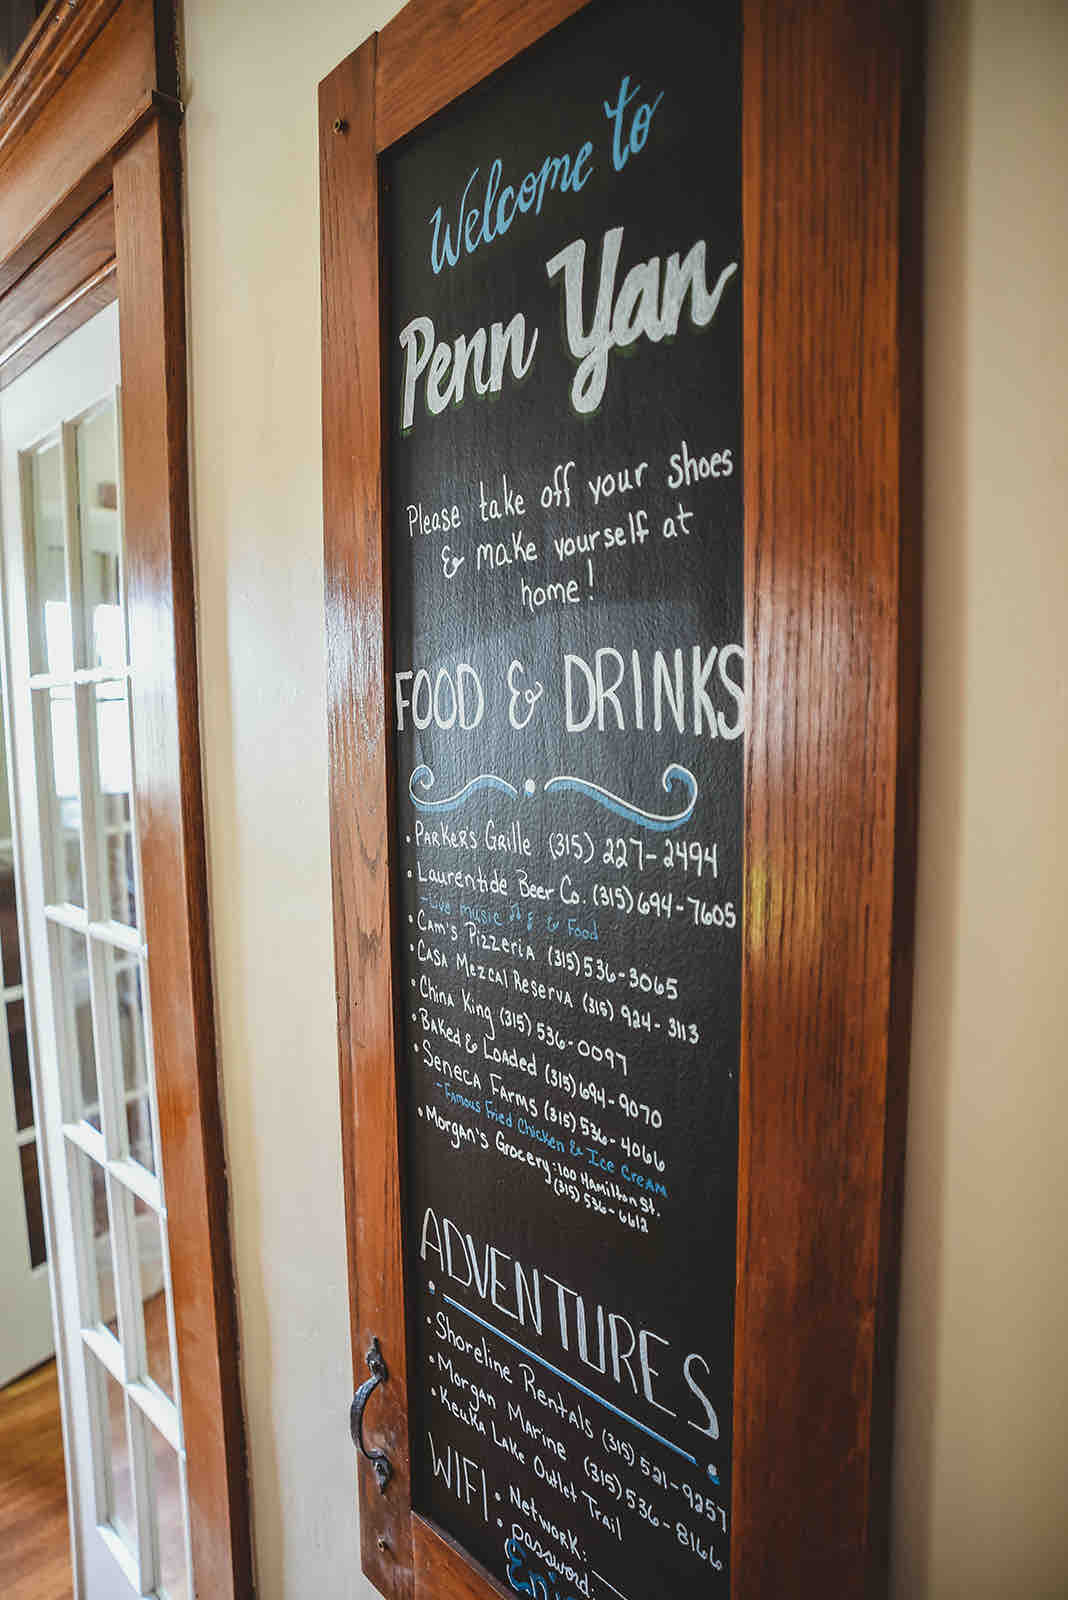 Welcome to
Penn Yan
Please take off your shoes
& make yourself at
home!
FOOD & DRINKS
• Parker's Grille (315) 227-2494
• Laurentide Beer Co. (315) 694-7605
- Live music & Food
• Cam's Pizzeria (315) 536-3065
• Casa Mezcal Reserva (315) 924-3113
• China King (315) 536-0097
• Baked & Loaded (315) 694-9070
• Seneca Farms (315) 536-4066
- Famous Fried Chicken & Ice Cream
• Morgan's Grocery: 100 Hamilton St.
(315) 536-6612
ADVENTURES
• Shoreline Rentals (315) 521-9257
• Morgan Marine (315) 536-8166
• Keuka Lake Outlet Trail
WIFI • Network:
• Password: